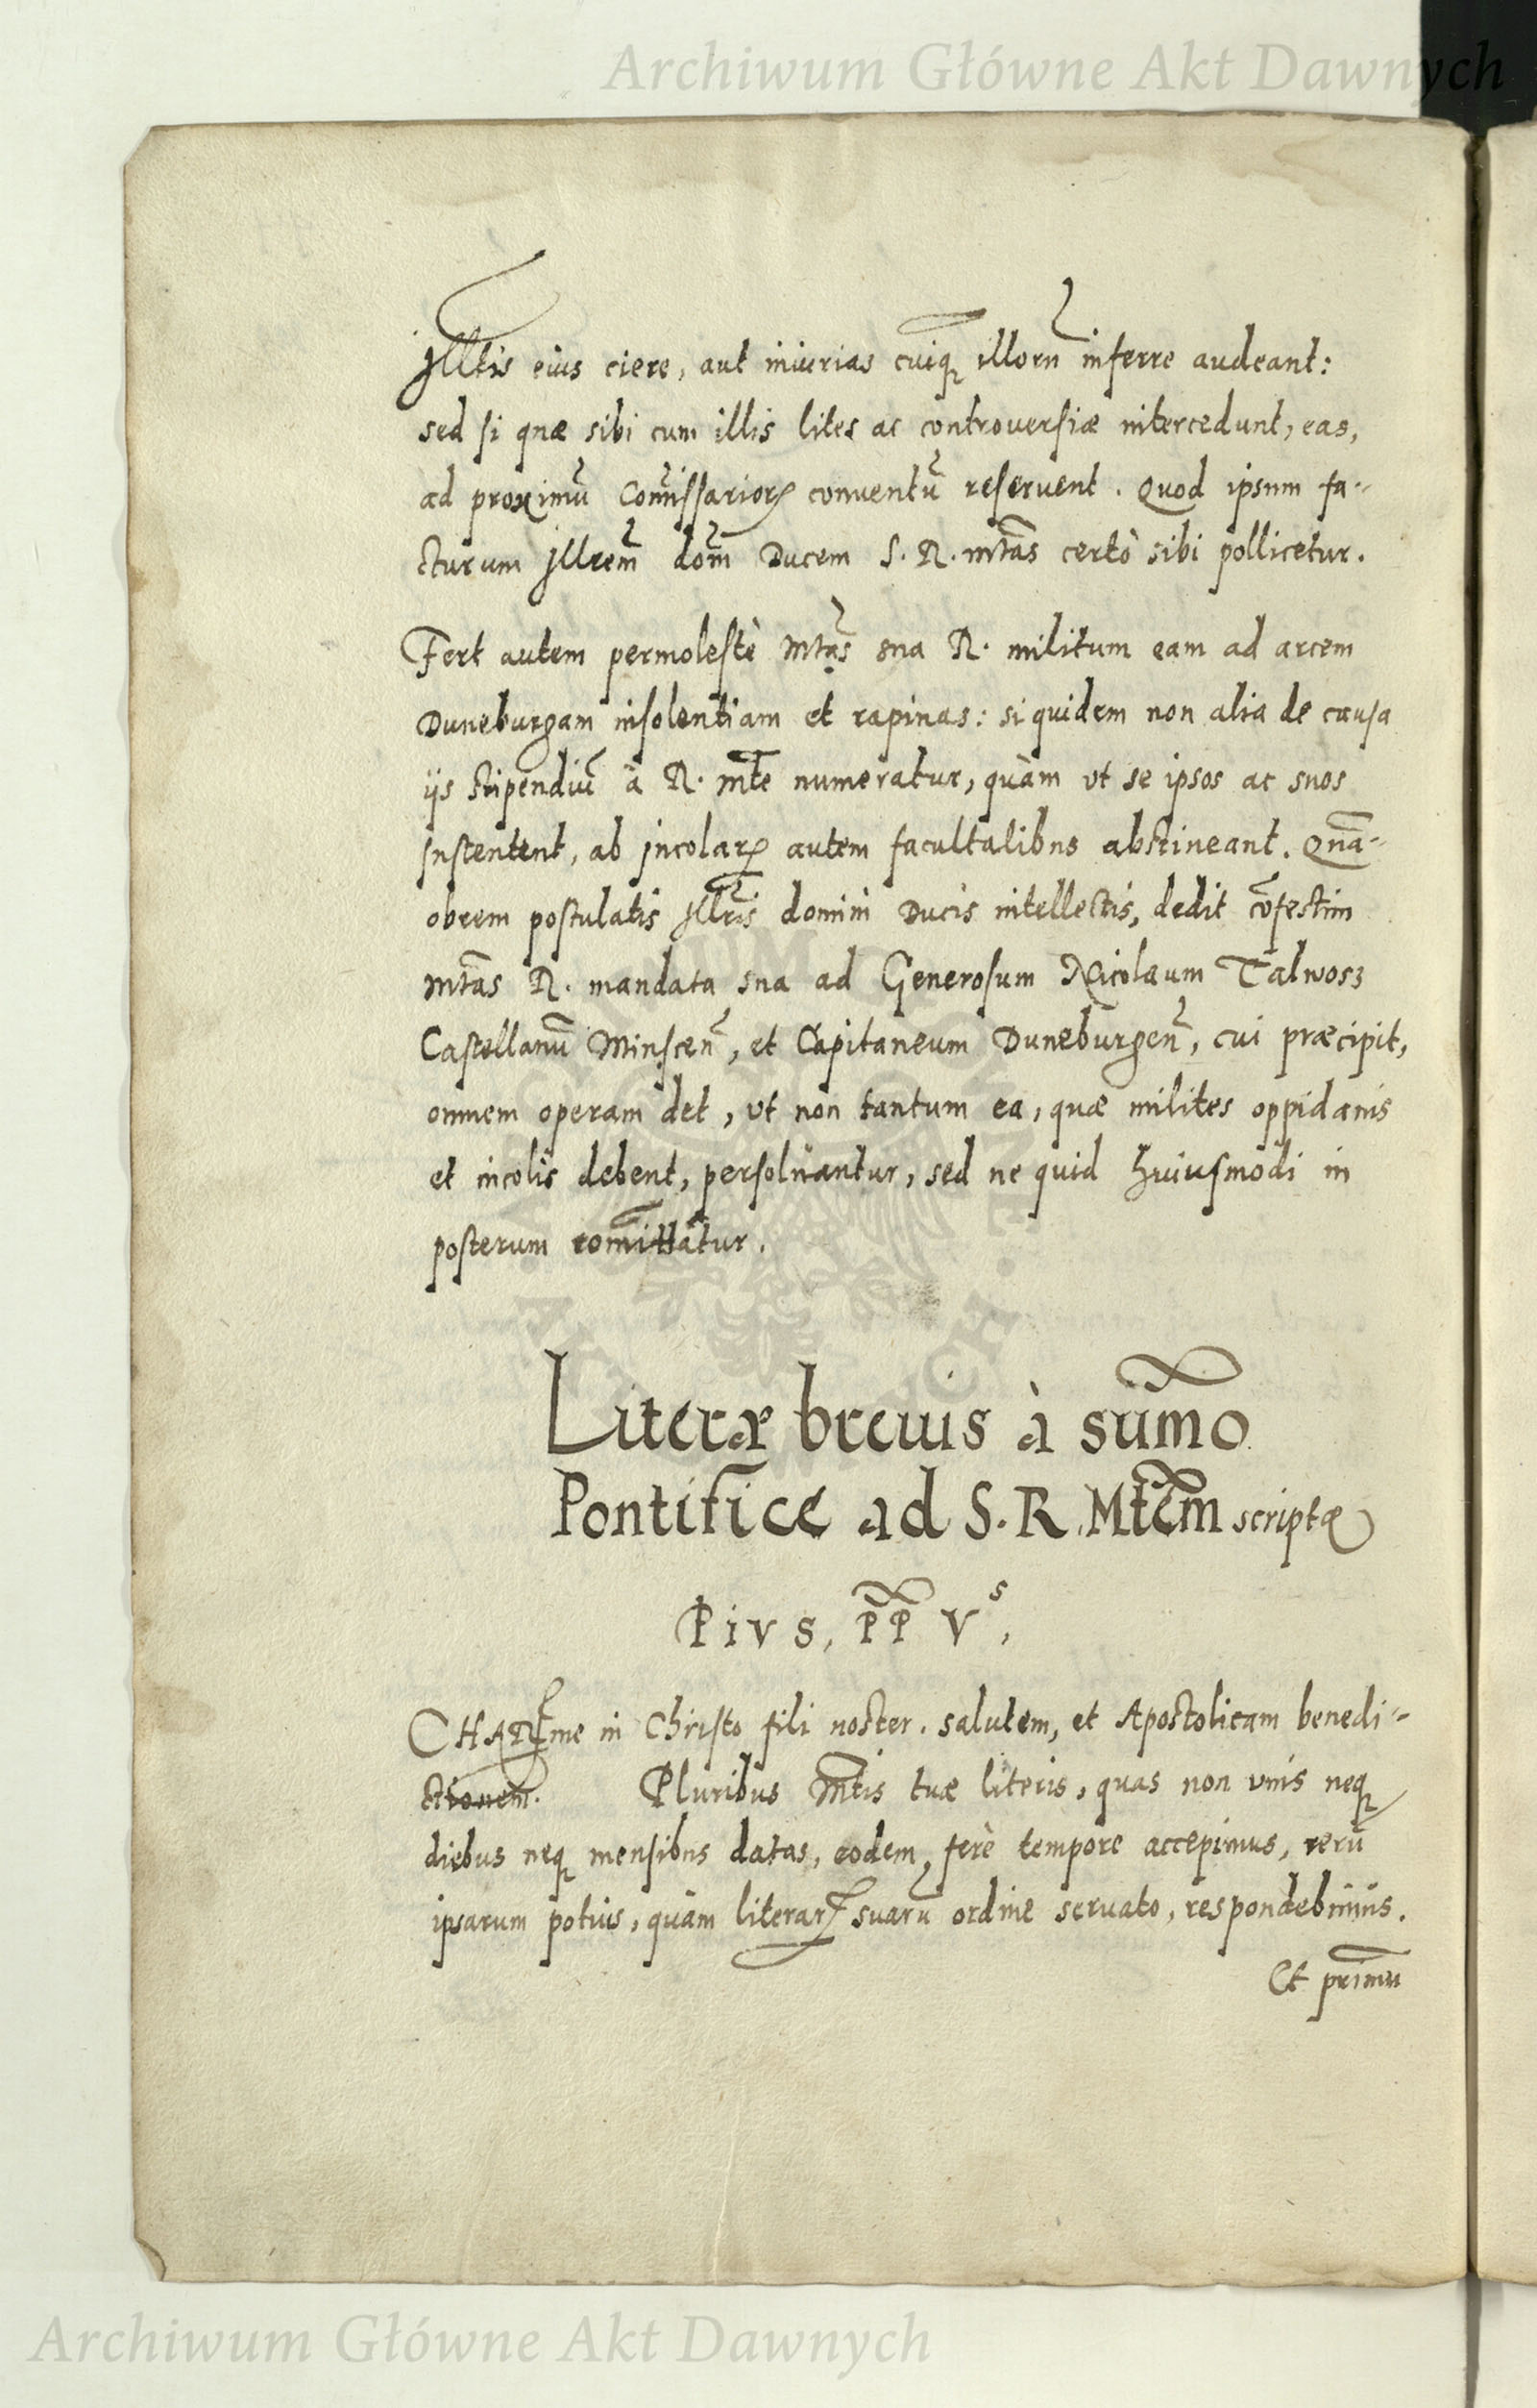 Archiwum Główne Akt Dawnych
Illtis eius ciere, aut iniurias cuiq illorū inferre audeant:
sed si quæ sibi cum illis lites ac controuersiæ intercedunt, eas,
ad proximū Com̄issarioꝝ conuentū reseruent. Quod ipsum fa-
cturum Illrem̄ dom̄ Ducem S. R. mtās certò sibi pollicetur.
Fert autem permolestè Mtās sua R. militum eam ad arcem
Duneburgam insolentiam et rapinas: siquidem non alia de causa
ijs stipendiū à R. mt̄e numeratur, quàm vt se ipsos ac suos
sustentent, ab incolaꝝ autem facultatibus abstineant. Quā-
obrem postulatis Illr̄is domini Ducis intellectis, dedit cōfestim
mtās R. mandata sua ad Generosum Nicolaum Talwosz
Castellanū Minscen̄, et Capitaneum Duneburgen̄, cui præcipit,
omnem operam det, vt non tantum ea, quæ milites oppidanis
et incolis debent, persoluantur, sed ne quid huiusmodi in
posterum com̄ittatur.
Literæ breuis à sum̄o
Pontifice ad S. R. Mtem̄ scriptæ
Pivs, P̄P̄ Vˢ,
CHARme in Christo fili noster. salutem, et Apostolicam benedi-
ctionem. Pluribus Mt̄is tuæ literis, quas non vnis neq
diebus neq mensibus datas, eodem ferè tempore accepimus, rerū
ipsarum potius, quàm literaꝝ suarū ordine seruato, respondebimus.
Et primū
Archiwum Główne Akt Dawnych